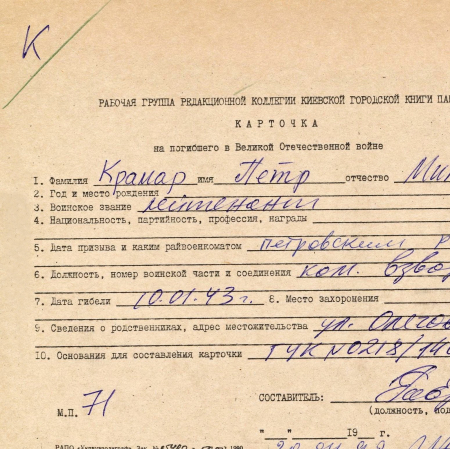 К
РАБОЧАЯ ГРУППА РЕДАКЦИОННОЙ КОЛЛЕГИИ КИЕВСКОЙ ГОРОДСКОЙ КНИГИ ПА
КАРТОЧКА
на погибшего в Великой Отечественной войне
1. Фамилия Крамар имя Петр отчество Ми
2. Год и место рождения
3. Воинское звание лейтенант
4. Национальность, партийность, профессия, награды
5. Дата призыва и каким райвоенкоматом петровским р
6. Должность, номер воинской части и соединения ком. взвод
7. Дата гибели 10.01.43 г. 8. Место захоронения
9. Сведения о родственниках, адрес местожительства ул.
10. Основания для составления карточки ГУК № 0218/
СОСТАВИТЕЛЬ:
(должность, под
М.П. 71
" " 19 г.